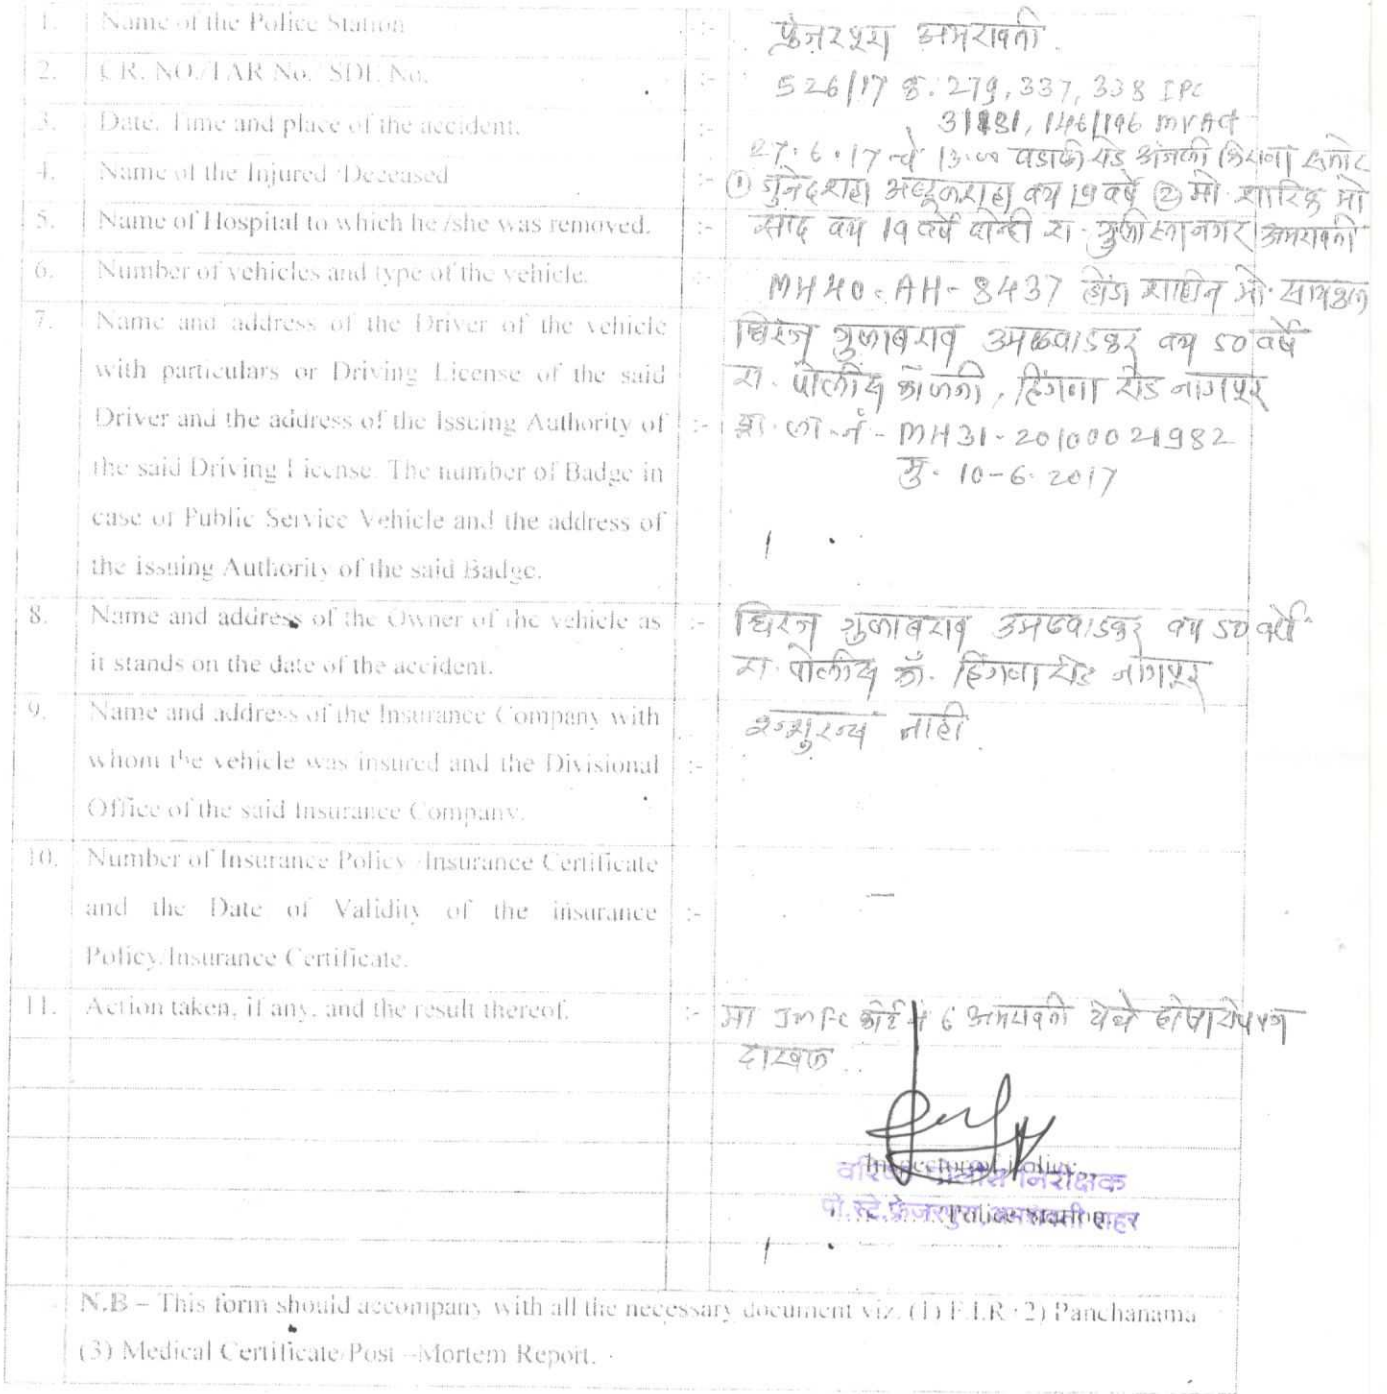 1. Name of the Police Station :- फ्रेजरपूरा अमरावती.
2. CR. NO./TAR No. SDE No. :- 526/17 क. 279, 337, 338 IPC
3/181, 146/196 MV Act
3. Date, Time and place of the accident. :- 27.6.17 चे 13.00 रोड
4. Name of the Injured /Deceased :- ① वय 19 वर्षे ② मो. शारिक मो
5. Name of Hospital to which he /she was removed. :- वय 19 वर्षे दोन्ही रा. अमरावती
6. Number of vehicles and type of the vehicle. :- MH40-AH-8437
7. Name and address of the Driver of the vehicle
with particulars or Driving License of the said
Driver and the address of the Issuing Authority of :-
the said Driving License. The number of Badge in
case of Public Service Vehicle and the address of
the issuing Authority of the said Badge.
धिरज गुलाबराव वय 50 वर्षे
रा. पोलीस कॉलनी, हिंगणा रोड नागपूर
ला. नं - MH31-20100021982
मु. 10-6-2017
8. Name and address of the Owner of the vehicle as :-
it stands on the date of the accident.
धिरज गुलाबराव वय 50 वर्षे
रा. पोलीस कॉ. हिंगणा रोड नागपूर
9. Name and address of the Insurance Company with
whom the vehicle was insured and the Divisional :-
Office of the said Insurance Company.
इन्शुरन्स नाही.
10. Number of Insurance Policy /Insurance Certificate
and the Date of Validity of the insurance :-
Policy/Insurance Certificate.
—
11. Action taken, if any, and the result thereof. :- मा JMFC कोर्ट नं 6 अमरावती येथे दोषारोपपत्र
दाखल ..
Inspector of Police
वरिष्ठ पोलीस निरीक्षक
Police Station
पो.स्टे.फ्रेजरपुरा, अमरावती शहर
N.B – This form should accompany with all the necessary document viz. (1) F.I.R 2) Panchanama
(3) Medical Certificate/Post –Mortem Report.